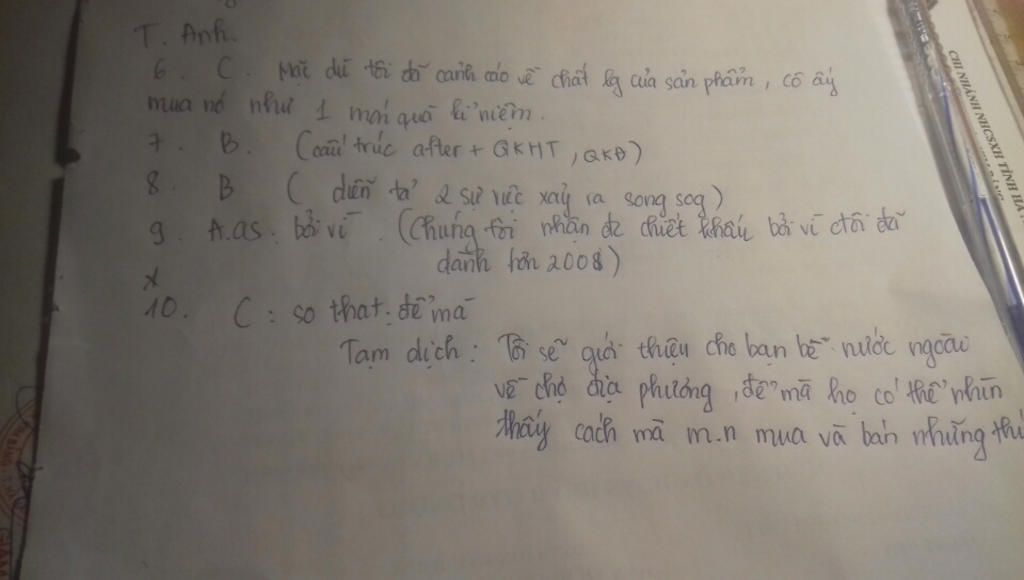 T. Anh.
6. C. Mặc dù tôi đã cảnh cáo về chất lg của sản phẩm, cô ấy
mua nó như 1 món quà kỉ niệm.
7. B. (cấu trúc after + QKHT, QKĐ)
8. B ( diễn tả 2 sự việc xảy ra song sog)
9. A.as: bởi vì. (Chúng tôi nhận đc chiết khấu bởi vì ctôi đã
dành hơn 200$)
*
10. C : so that: để mà
Tạm dịch: Tôi sẽ giới thiệu cho bạn bè nước ngoài
về chợ địa phương, để mà họ có thể nhìn
thấy cách mà m.n mua và bán những thứ
CHI NHÁNH NHCSXH TỈNH HÀ